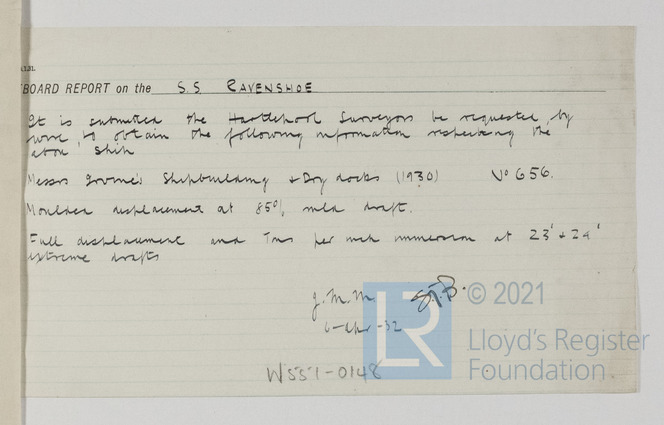 BOARD REPORT on the S.S. RAVENSHOE
It is submitted the Hartlepool Surveyors be requested, by
wire, to obtain the following information respecting the
above ship
Messrs Irvine's Shipbuilding & Dry docks (1930) No 656.
Moulded displacement at 85% mld draft.
Full displacement and Tons per inch immersion at 23' & 24'
extreme drafts
J.M.M. S.F.B.
6-Apr-32
W551-0148
LR © 2021
Lloyd's Register
Foundation